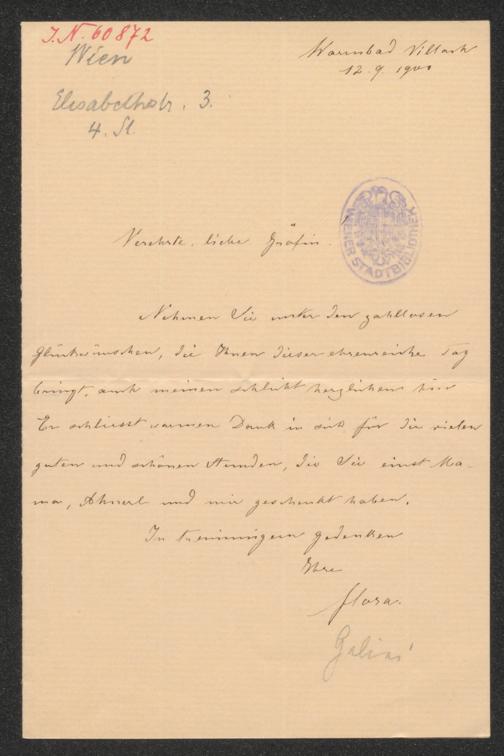 I.N. 60872
Wien
Elisabethstr. 3.
4. St.
Warmbad Villach
12. 9. 1900
WIENER STADTBIBLIOTHEK
Verehrte, liebe Gräfin.
Nehmen Sie unter den zahllosen
Glückwünschen, die Ihnen dieser ehrenreiche Tag
bringt, auch meinen schlicht herzlichen hin
Er schliesst warmen Dank in sich für die vielen
guten und schönen Stunden, die Sie einst Ma-
ma, und mir geschenkt haben.
In treuinnigem Gedenken
Ihre
Flora.